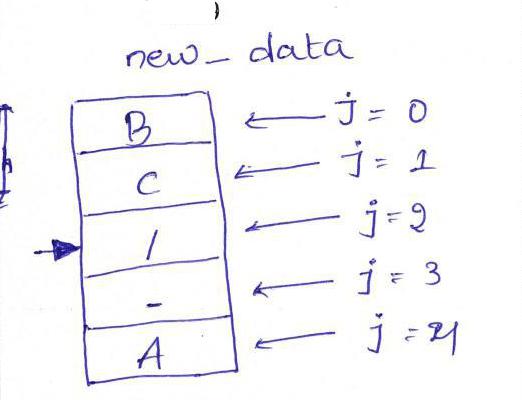 new_data
B j = 0
C j = 1
/ j = 2
- j = 3
A j = 4